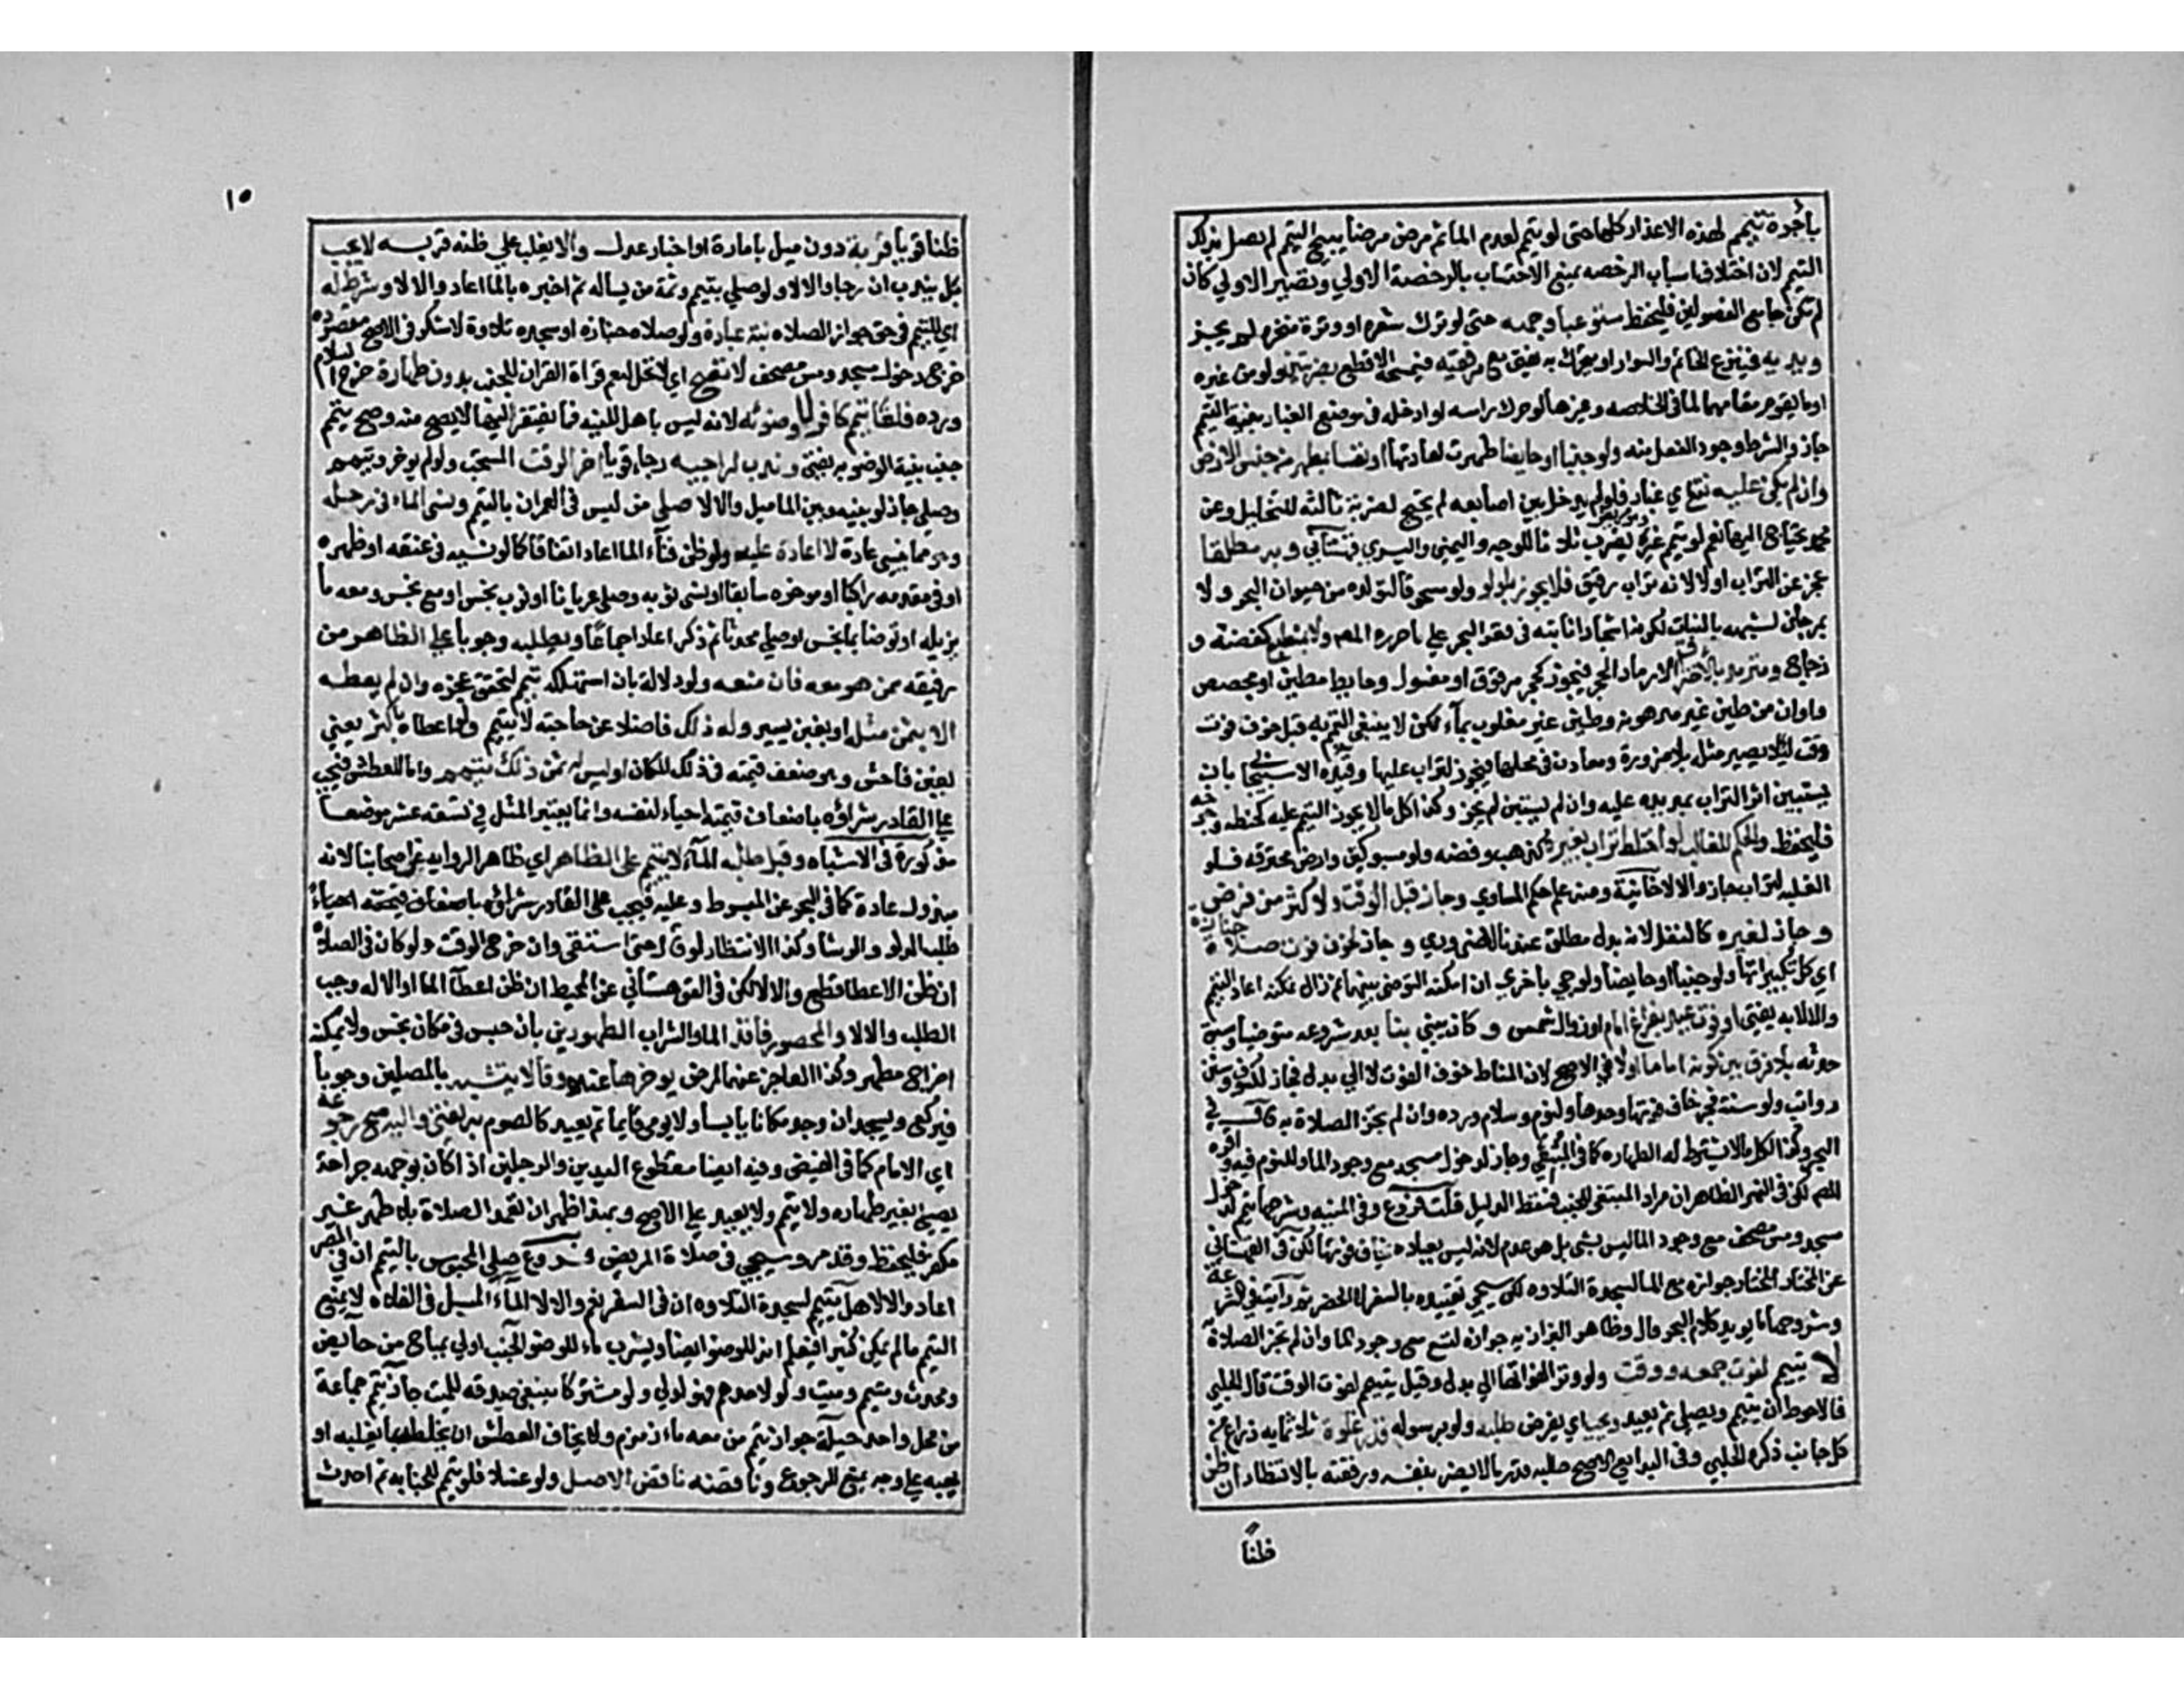 بأجرة تيمم لهذه الاعذار كلها حتى لو تيمم لعدم الما ثم مرض مرضا يبيح التيمم لم يصل بذلك
التيمم لان اختلاف اسباب الرخصه يمنع الاحتساب بالرخصة الاولي وتصير الاولي كان
لم تكن جامع الفصولين فليحفظ مستوعبا وجهه حتى لو ترك شعره او وترة منخره لم يجز
ويديه فينزع الخاتم والسوار او يحرك به يفتى مع مرفقيه فيمسحه الاقطع بضربتين ولو من غيره
او ما يقوم مقامهما لما في الخلاصه وغيرها لو حرك راسه او ادخله في موضع الغبار بنية التيمم
جاز والشرط وجود الفعل منه ولو جنبا او حايضا طهرت لعادتها او نفسا بمطهر من جنس الارض
وان لم يكن عليه نقع اي غبار فلو لم يدخل بين اصابعه لم يحتج لضربة ثالثه للتخليل وعن
محمد يحتاج اليها نعم لو تيمم غيره يضرب ثلاثا للوجه واليمنى واليسري قهستاني وبه مطلقا
عجز عن التراب اولا لانه تراب رقيق فلا يجوز بلولو ولو مسحوقا لتولده من حيوان البحر ولا
بمرجان لشبهه بالنبات لكونه اشجارا نابته في قعر البحر علي ما حرره المص ولا بمنطبع كفضة و
زجاج ومترمد بالاحتراق الا رماد الحجر فيجوز كحجر مدقوق او مغسول وحايط مطين او مجصص
واوان من طين غير مدهونه وطين غير مغلوب بماء لكن لا ينبغي التيمم به قبل خوف فوت
وقت ليلا يصير مثلة بلا ضرورة ومعادن في محلها فيجوز لتراب عليها وقيده الاسبيجابي بان
يستبين اثر التراب بمد يده عليه وان لم يستبن لم يجز وكذا كل ما لا يجوز التيمم عليه كحنطه وجوخه
فليحفظ والحكم للغالب لو اختلط تراب بغيره كذهب وفضه ولو مسبوكين وارض محترقه فلو
الغلبه لتراب جاز والا لا خانية ومنه علم حكم المساوي وجاز قبل الوقت ولاكثر من فرض
وجاز لغيره كالنفل لانه بدل مطلق عندنا لا ضروري وجاز لخوف فوت صلاة جنازة
اي كل تكبيراتها ولو جنبا او حايضا ولو جي باخري ان امكنه التوضي بينهما ثم زال تمكنه اعاد التيمم
والا لا به يفتى او فوت عيد بفراغ امام او زوال شمس ولو كان يبني بناء بعد شروعه متوضيا وسبق
حدثه بلا فرق بين كونه اماما اولا في الاصح لان المناط خوف الفوت لا الي بدل فجاز لكسوف وسنن
رواتب ولو سنة فجر خاف فوتها وحدها ولنوم وسلام ورده وان لم تجز الصلاة به قال في
البحر وكذا لكل ما لا تشترط له الطهاره كما في المبتغي وجاز لدخول مسجد مع وجود الما وللنوم فيه واقره
المص لكن في النهر الظاهر ان مراد المبتغي للجنب فسقط الدليل قلت وفي المنيه وشرحها تيممه لدخول
مسجد ومس مصحف مع وجود الما ليس بشي بل هو عدم لانه ليس لعبادة يخاف فوتها لكن في القهستاني
عن المختار المختار جوازه مع الما لسجدة التلاوه لكن سيجي تقييده بالسفر لا الحضر ثم رايت في الشرعة
وشروحها ما يويد كلام البحر قال وظاهر البزازيه جوازه لتسع مع وجود الما وان لم تجز الصلاة به
لا يتيمم لفوت جمعه ووقت ولو وترا لفواتها الي بدل وقيل يتيمم لفوت الوقت قال الحلبي
فالاحوط ان يتيمم ويصلي ثم يعيد ويجب اي يفرض طلبه ولو برسوله قدر غلوة ثلاثمايه ذراع من
كل جانب ذكره الحلبي وفي البدايع الاصح طلبه قدر ما لا يضر بنفسه ورفقته بالانتظار ان ظن
ظنا
١٥
ظنا قويا قربه دون ميل بامارة او اخبار عدل والا يغلب علي ظنه قربه لا يجب
بل يندب ان رجا والا لا ولو صلي بتيمم وثمة من يساله ثم اخبره بالما اعاد والا لا وشرط له
اي للتيمم في حق جواز الصلاه به نية عبادة ولو صلاة جنازه او سجدة تلاوة لا شكر في الاصح مقصوده
خرج دخول مسجد ومس مصحف لا تصح اي لا تحل ليعم قراة القران للجنب بدون طهارة خرج السلام
ورده فلغا تيمم كافر لا وضوئه لانه ليس باهل للنيه فما يفتقر اليها لا يصح منه وصح تيمم
جنب بنية الوضوء به يفتى وندب لراجيه رجاء قويا اخر الوقت المستحب ولو لم يوخر وتيمم
وصلي جاز لو بينه وبين الما ميل والا لا صلي من ليس في العمران بالتيمم ونسي الماء في رحله
وهو مما ينسي عادة لا اعادة عليه ولو ظن فناء الما اعاد اتفاقا كما لو نسيه في عنقه او ظهره
او في مقدمه راكبا او موخره سايقا او نسي ثوبه وصلي عريانا او ثوب نجس او مع نجس ومعه ما
يزيله او توضا بما نجس او صلي محدثا ثم ذكر اعاد اجماعا ويطلبه وجوبا علي الظاهر من
رفيقه ممن هو معه فان منعه ولو دلالة بان استهلكه تيمم لتحقق عجزه وان لم يعطه
الا بثمن مثله او بغبن يسير وله ذلك فاضلا عن حاجته لا يتيمم ولو اعطاه باكثر يعني
بغبن فاحش وهو ضعف قيمته في ذلك المكان او ليس له ثمن ذلك تيمم واما للعطش فيجب
علي القادر شراؤه باضعاف قيمته احياء لنفسه وانما يعتبر المثل في تسعة عشر موضعا
مذكورة في الاشباه وقبل طلبه الماء لا يتيمم علي الظاهر اي ظاهر الروايه عن اصحابنا لانه
مبذول عادة كما في البحر عن المبسوط وعليه فيجب علي القادر شراؤه باضعاف قيمته احياء
طلب الدلو والرشا وكذا الانتظار لو قال حتى استقي وان خرج الوقت ولو كان في الصلاه
ان ظن الاعطا قطع والا لا لكن في القهستاني عن المحيط ان ظن اعطاء الما او الاله وجب
الطلب والا لا والمحصور فاقد الما والتراب الطهورين بان حبس في مكان نجس ولا يمكنه
اخراج مطهر وكذا العاجز عنهما لمرض يوخرها عنده وقالا يتشبه بالمصلين وجوبا
فيركع ويسجد ان وجد مكانا يابسا والا يومي قايما ثم يعيد كالصوم به يفتى واليه صح رجوعه
اي الامام كما في الفيض وفيه ايضا مقطوع اليدين والرجلين اذا كان بوجهه جراحة
يصلي بغير طهاره ولا يتيمم ولا يعيد علي الاصح وبهذا ظهر ان تعمد الصلاة بلا طهر غير
مكفر فليحفظ وقد مر وسيجي في صلاة المريض فروع صلي المحبوس بالتيمم ان في المصر
اعاد والا لا هل يتيمم لسجدة التلاوه ان في السفر نعم والا لا الماء المسبل في الفلاه لا يمنع
التيمم ما لم يكن كثيرا فيعلم انه للوضو ايضا ويشرب ما للوضو الجنب اولي بمباح من حايض
ومحدث وميت ولو لاحدهم فهو اولي ولو مشتركا ينبغي صرفه للميت جاز تيمم جماعة
من محل واحد حيلة جواز تيمم من معه ماء زمزم ولا يخاف العطش ان يخلطه بما يغلبه او
يهبه علي وجه يمنع الرجوع وناقضه ناقض الاصل ولو غسلا فلو تيمم للجنابه ثم احدث